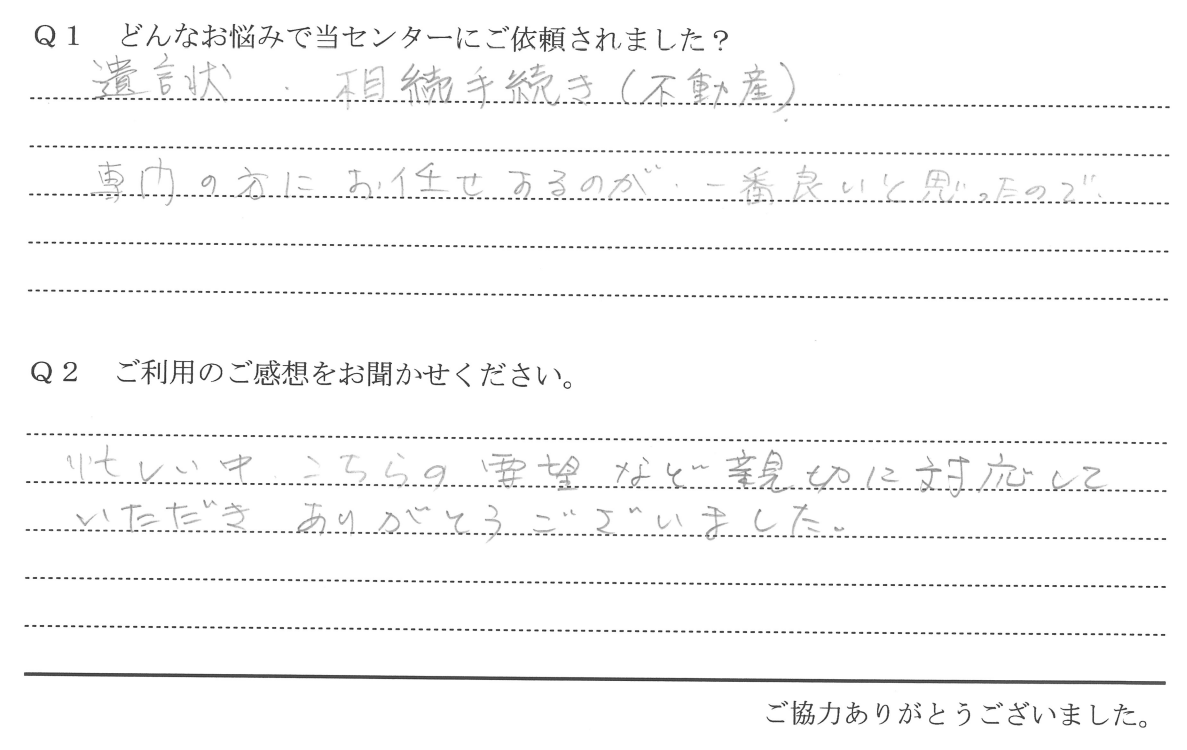 Q1 どんなお悩みで当センターにご依頼されました?
遺言状・相続手続き(不動産)
専門の方にお任せするのが、一番良いと思ったので、
Q2 ご利用のご感想をお聞かせください。
忙しい中、こちらの要望など親切に対応して
いただき ありがとうございました。
ご協力ありがとうございました。